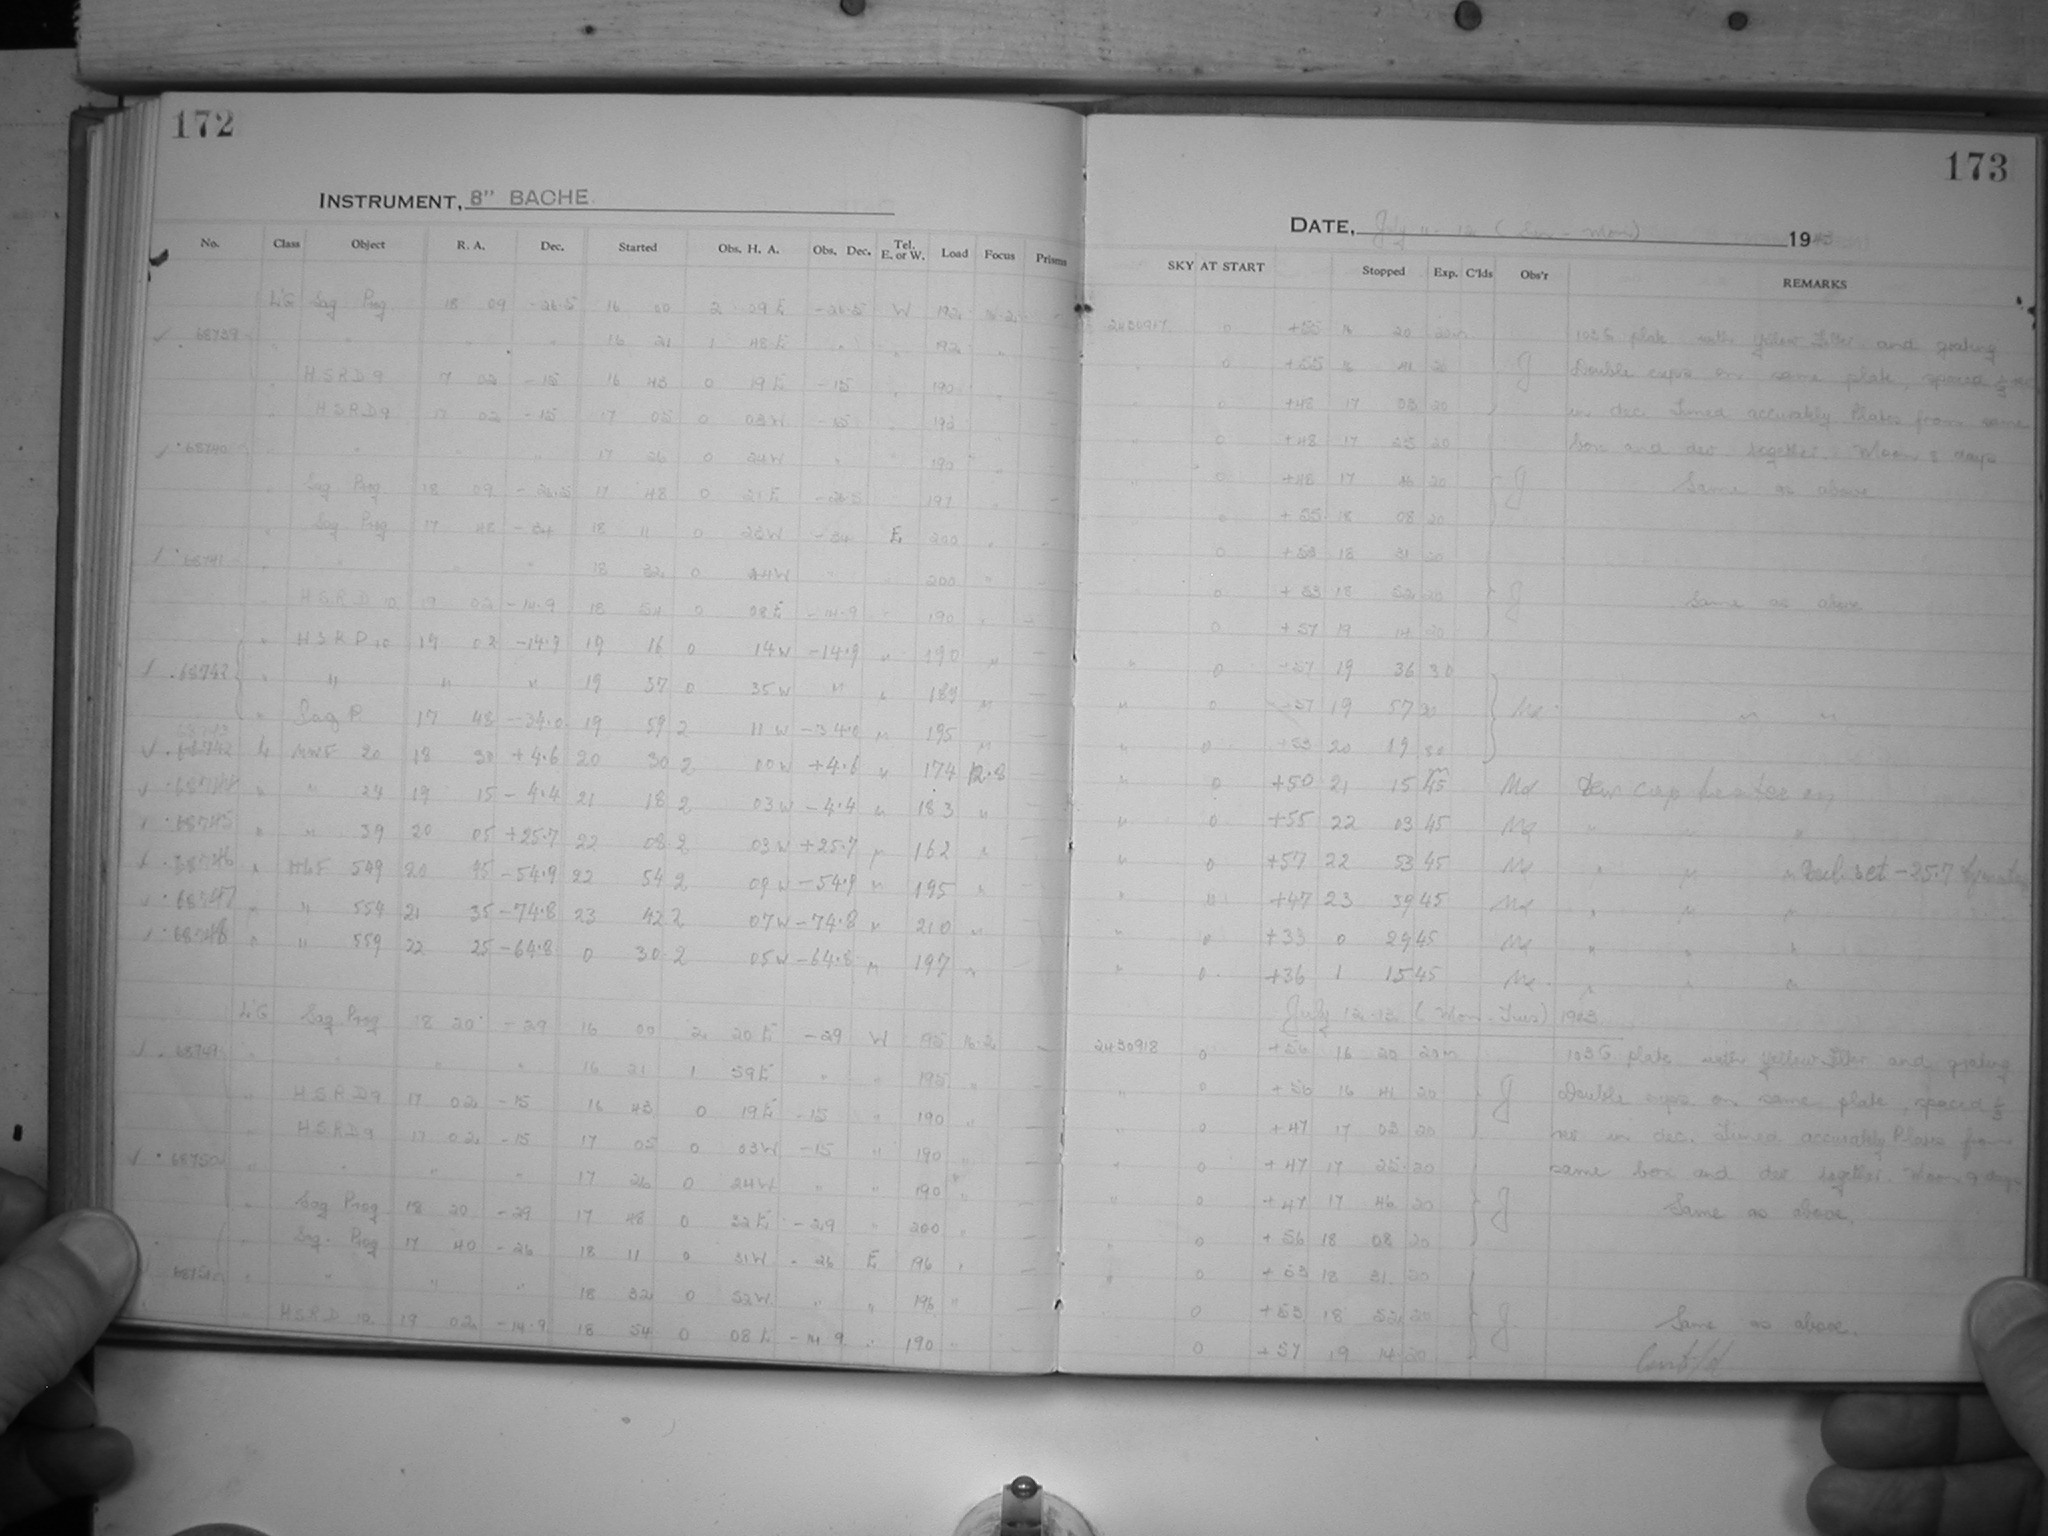 172
INSTRUMENT, 8" BACHE
No. Class Object R. A. Dec. Started Obs. H. A. Obs. Dec. Tel. E. or W. Load Focus Prisms
Sag Prog. 18 09 -26.5 16 00 2 09 E -26.5 W 192 16.2
68739 " " " " 16 21 1 48 E " " 192 "
" HSRD9 17 02 -15 16 43 0 19 E -15 " 190 "
" HSRD9 17 02 -15 17 05 0 03 W -15 "
68740 " " " " 17 26 0 24 W " " 190 "
" Sag Prog 18 09 -26.5 17 48 0 21 E -26.5 197 "
" Sag Prog 17 48 -34 18 11 0 23 W -34 E 200 "
68741 " " " " 18 32 0 44 W " " 200 "
" HSRD 10 19 02 -14.9 18 54 0 08 E -14.9 " 190 "
" HSRD 10 19 02 -14.9 19 16 0 14 W -14.9 " 190 "
68742 " " " " 19 37 0 35 W " " 189 "
" Sag P 17 48 -34.0 19 59 2 11 W -34.0 " 195 "
68743 MWF 20 18 30 +4.6 20 30 2 00 W +4.6 " 174 12.8
68744 " " 24 19 15 -4.4 21 18 2 03 W -4.4 " 183 "
68745 " " 39 20 05 +25.7 22 08 2 03 W +25.7 " 162 "
68746 " 549 20 45 -54.9 22 54 2 09 W -54.9 " 195 "
68747 " " 554 21 35 -74.8 23 42 2 07 W -74.8 " 210 "
68748 " " 559 22 25 -64.8 0 30 2 05 W -64.8 " 197 "
Sag Prog 18 20 -29 16 00 2 20 E -29 W 195 16.2
68749 " " " " 16 21 1 59 E " " 195 "
" HSRD9 17 02 -15 16 43 0 19 E -15 " 190 "
" HSRD9 17 02 -15 17 05 0 03 W -15 " 190 "
68750 " " " " 17 26 0 24 W " " 190 "
" Sag Prog 18 20 -29 17 48 0 32 E -29 " 200 "
" Sag. Prog 17 40 -26 18 11 0 31 W -26 E 196 "
" " " " 18 32 0 52 W " " 196 "
" HSRD 10 19 02 -14.9 18 54 0 08 E -14.9 " 190 "
173
DATE, July 11-12 (Sun - Mon) 1943
SKY AT START Stopped Exp. C'lds Obs'r REMARKS
2430917 0 +55 16 20 20m plate with yellow filter and grating
" 0 +55 16 41 20 J Double exps on same plate, spaced
" 0 +48 17 03 20 in dec. Timed accurately Plates from same
" 0 +48 17 25 20 box and dev together. Moon 8 days
" 0 +48 17 46 20 J Same as above
" 0 +55 18 08 20
" 0 +53 18 31 20
" 0 +53 18 52 20 J Same as above
0 +57 19 14 20
" 0 +57 19 36 20
" 0 +57 19 57 20 Md " "
" 0 +53 20 19 20
" 0 +50 21 15 45m Md Dew cap heater on
" 0 +55 22 03 45 Md " " "
" 0 +57 22 53 45 Md " " " Decl. set -25.7
" " +47 23 39 45 Md " " "
" 0 +33 0 29 45 Md " " "
" 0 +36 1 15 45 Md " " "
July 12-13 (Mon - Tues) 1943
2430918 0 +56 16 20 20m plate with yellow filter and grating
" 0 +56 16 41 20 J Double exps on same plate, spaced
" 0 +47 17 03 20 in dec. Timed accurately Plates from
" 0 +47 17 25 20 same box and dev together. Moon 9 days
" 0 +47 17 46 20 J Same as above.
" 0 +56 18 08 20
" 0 +53 18 31 20
0 +53 18 52 20 J Same as above.
0 +57 19 14 20